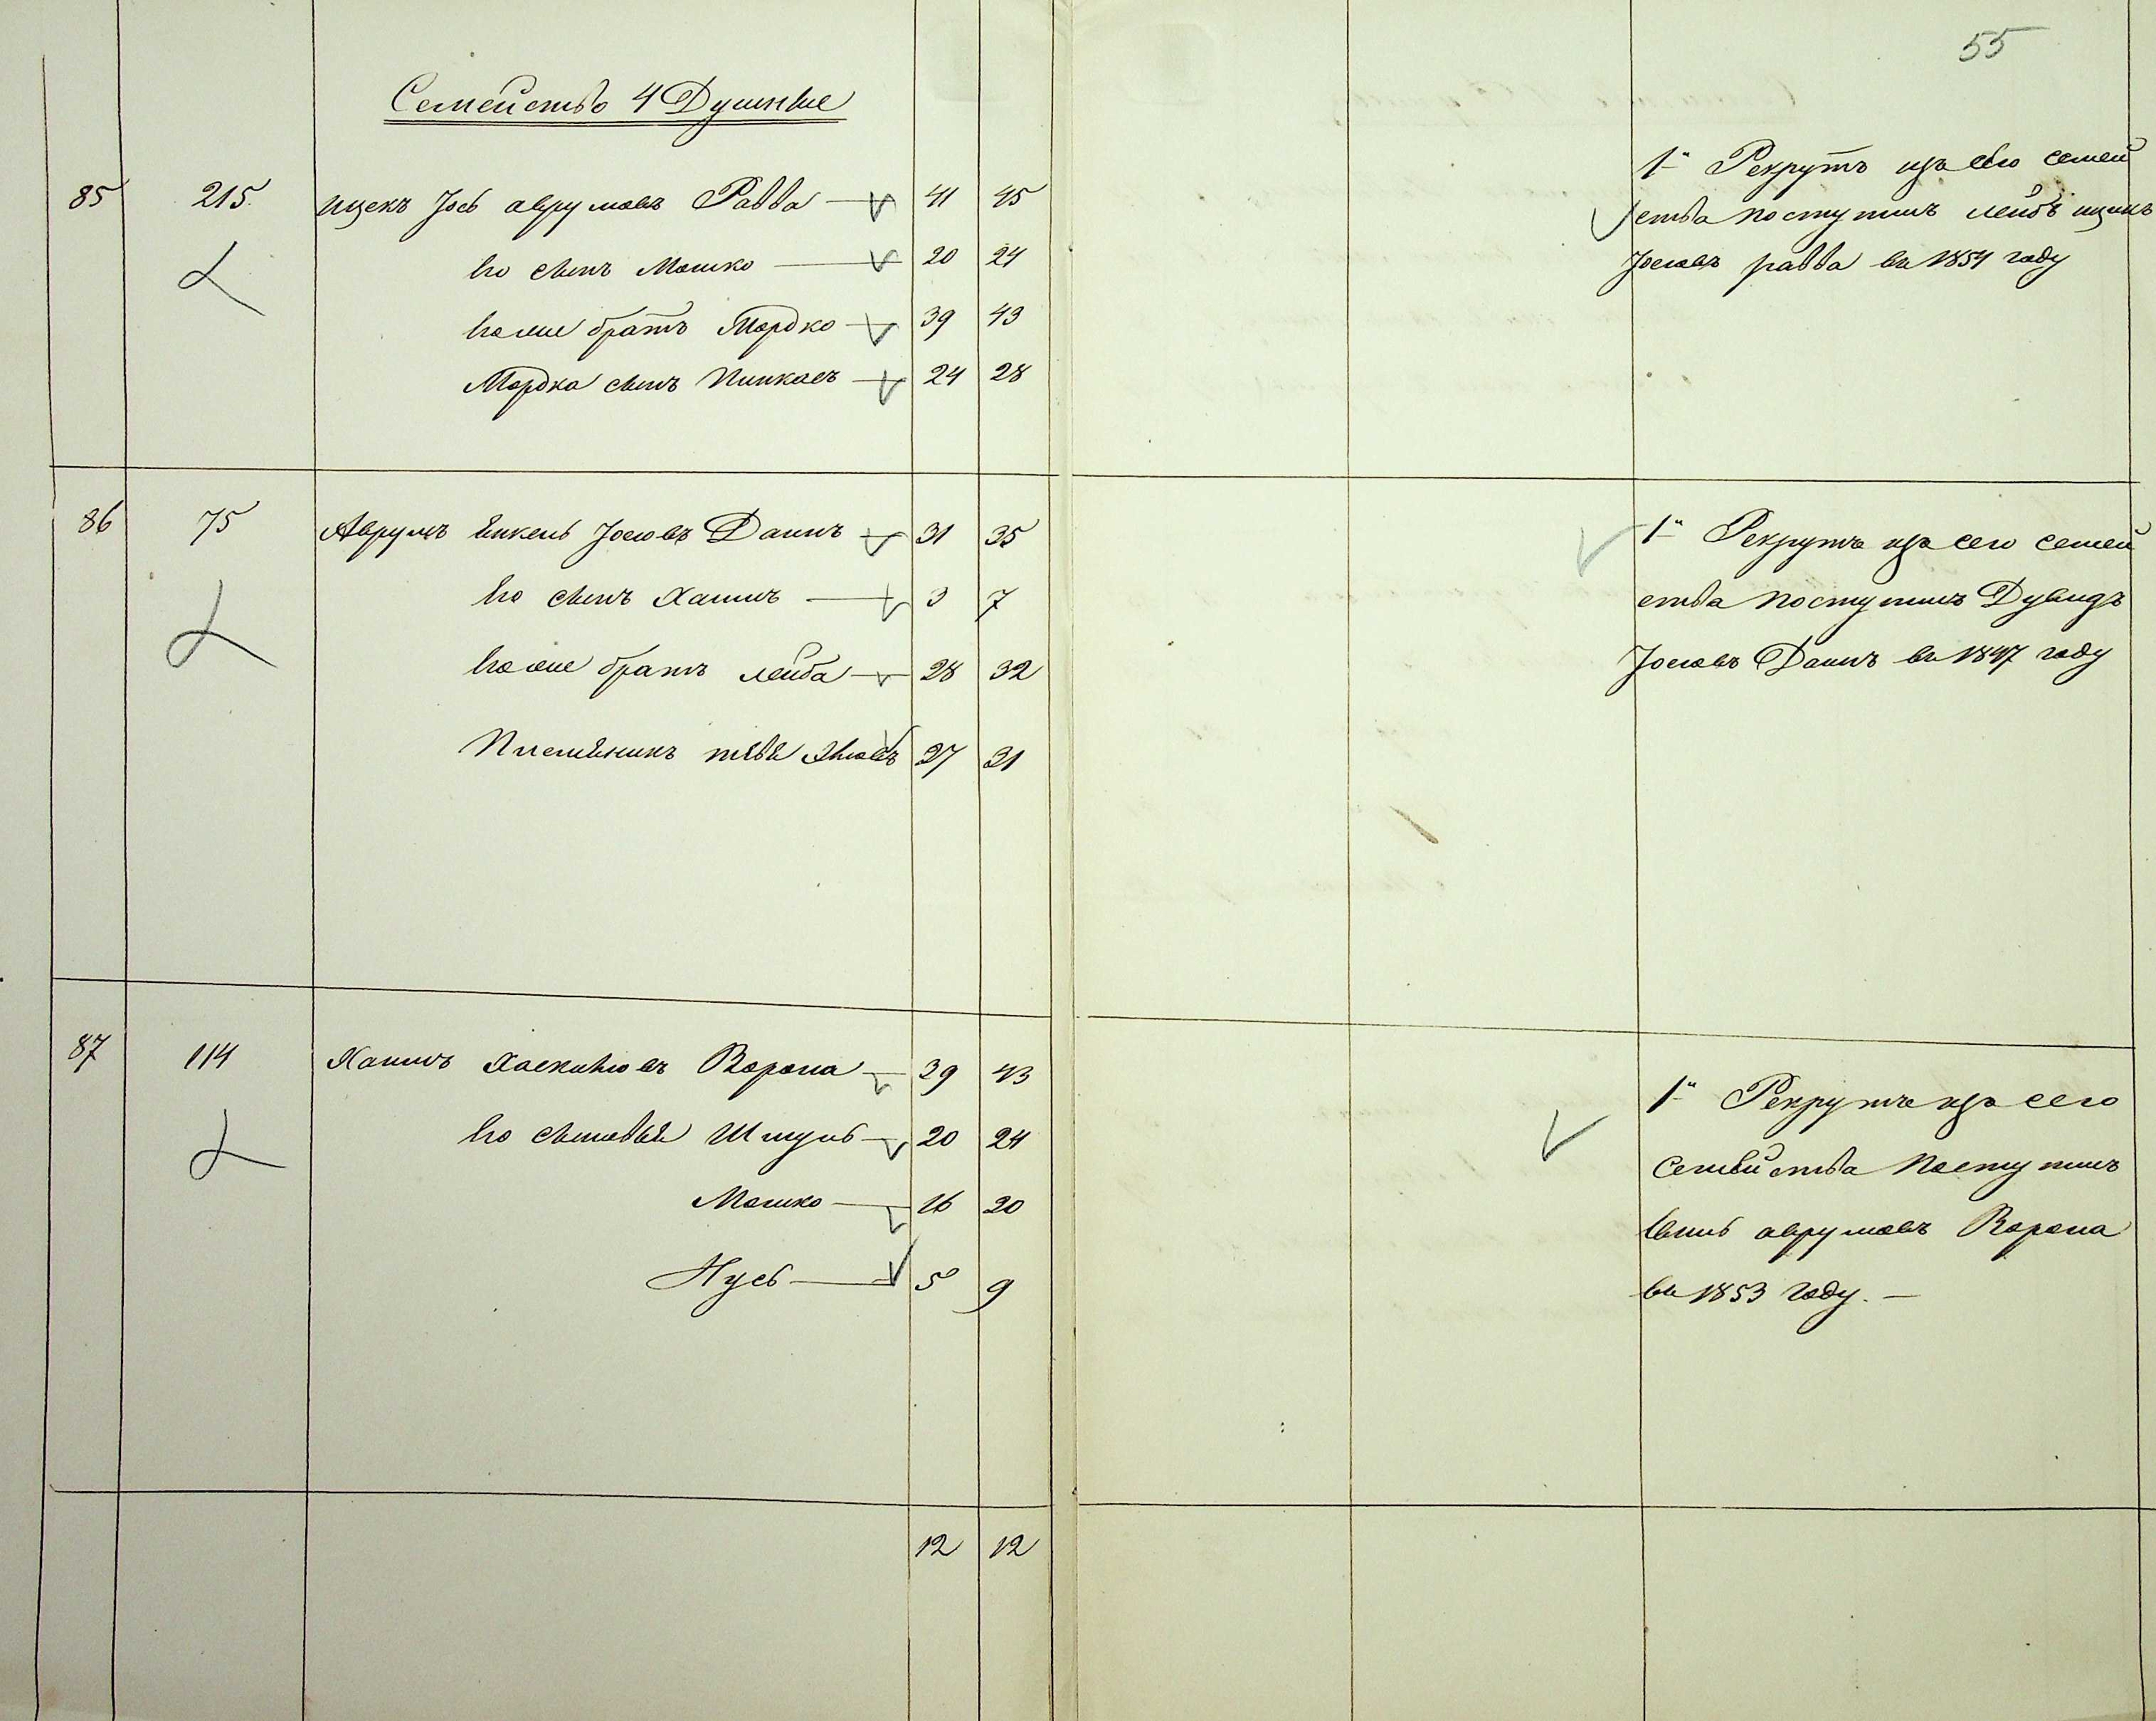 55
Семейство 4 Душные
85 215 ицекъ Іось аврумовъ Равва 41 45
Его сынъ Мошко 20 24
Его же братъ Мордко 39 43
Мордка сынъ Пинкасъ 24 28
1й Рекрутъ изъ сего семей
ства поступилъ лейбъ ицикъ
Іосіовъ равва въ 1854 году
86 75 Аврумъ Янкель Іосіовъ Даинъ 31 35
Его сынъ Хаимъ 3 7
Его же братъ лейба 28 32
Племѣникъ тевѣ 27 31
1й Рекрутъ изъ сего семей
ства поступилъ Дувидъ
Іосіовъ Даинъ въ 1847 году
87 114 Хаимъ Хаскилювъ Ворона 39 43
Его сыновья Шмуль 20 24
Мошко 16 20
Нусь 5 9
1й Рекрутъ изъ сего
Семейства Поступилъ
аврумовъ Ворона
въ 1853 году. —
12 12